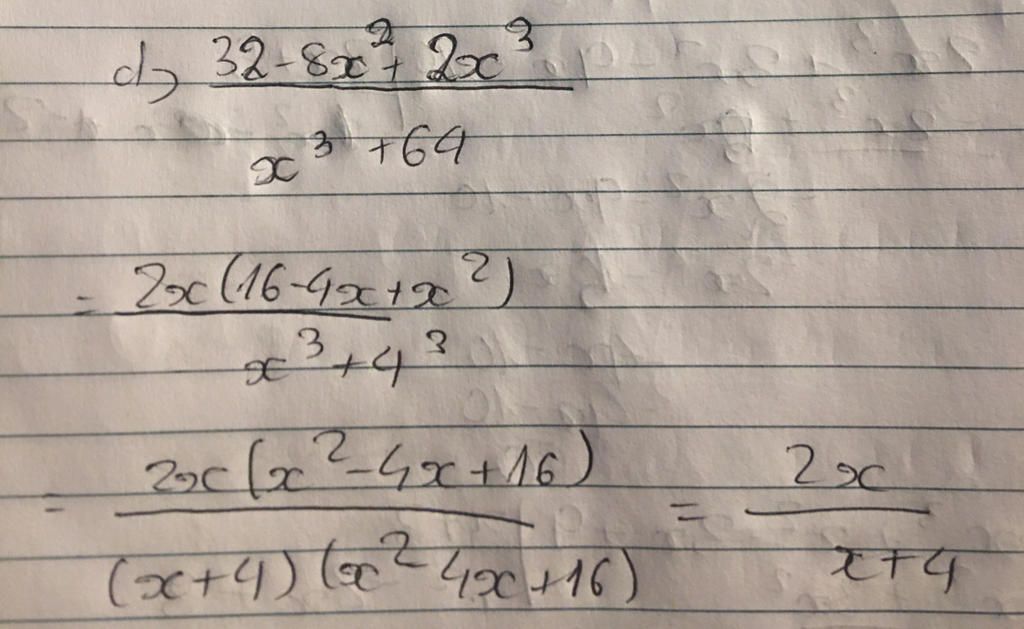 d) (32-8x²+2x³)/(x³+64)
= 2x(16-4x+x²)/(x³+4³)
= 2x(x²-4x+16)/((x+4)(x² 4x+16)) = 2x/(x+4)